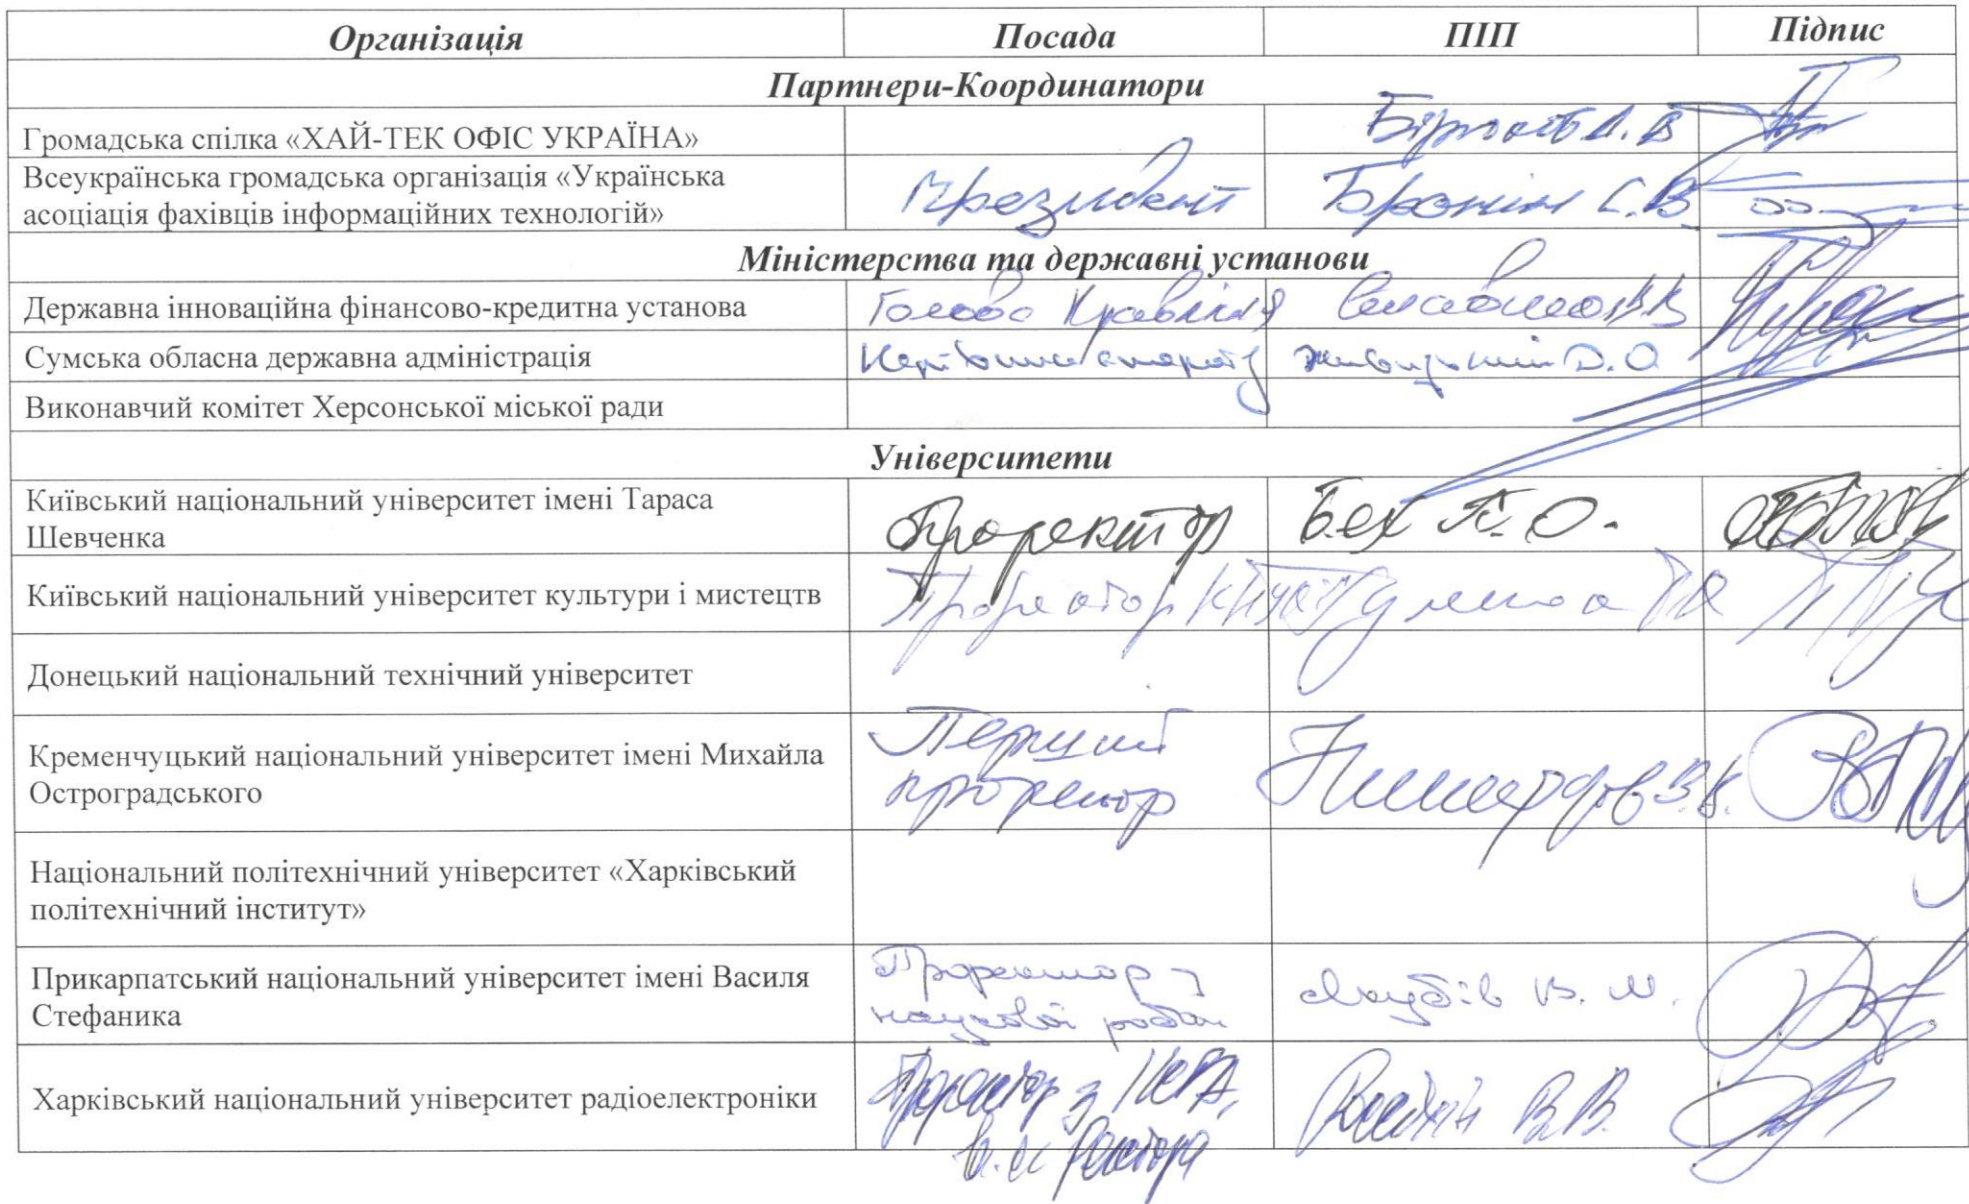 Організація Посада ПІП Підпис
Партнери-Координатори
Громадська спілка «ХАЙ-ТЕК ОФІС УКРАЇНА»
Всеукраїнська громадська організація «Українська
асоціація фахівців інформаційних технологій» Президент Бронін С.В
Міністерства та державні установи
Державна інноваційна фінансово-кредитна установа Голова Правління
Сумська обласна державна адміністрація Керівник апарату Живицький Д.О
Виконавчий комітет Херсонської міської ради
Університети
Київський національний університет імені Тараса
Шевченка Проректор Бех П.О.
Київський національний університет культури і мистецтв Проректор
Донецький національний технічний університет
Кременчуцький національний університет імені Михайла
Остроградського
Перший
проректор
Національний політехнічний університет «Харківський
політехнічний інститут»
Прикарпатський національний університет імені Василя
Стефаника
Проректор з
наукової роботи
Якубів В. М.
Харківський національний університет радіоелектроніки
Проректор з
в.о. ректора
В.В.